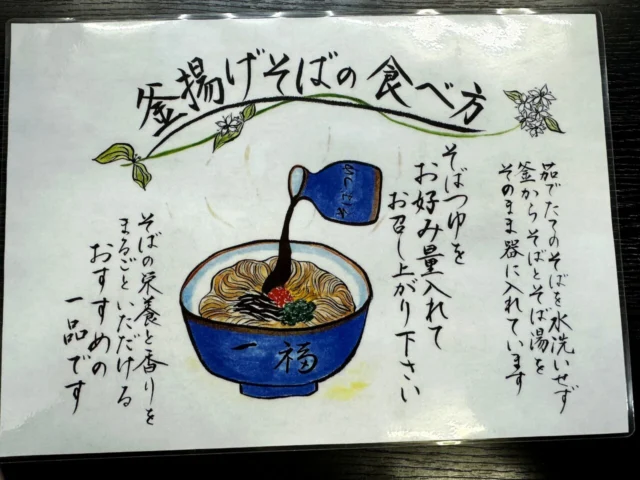 釜揚げそばの食べ方
茹でたてのそばを水洗いせず
釜からそばとそば湯を
そのまま器に入れています
そばつゆを
お好み量入れて
お召し上がり下さい
そばの栄養と香りを
まるごといただける
おすすめの
一品です
一福